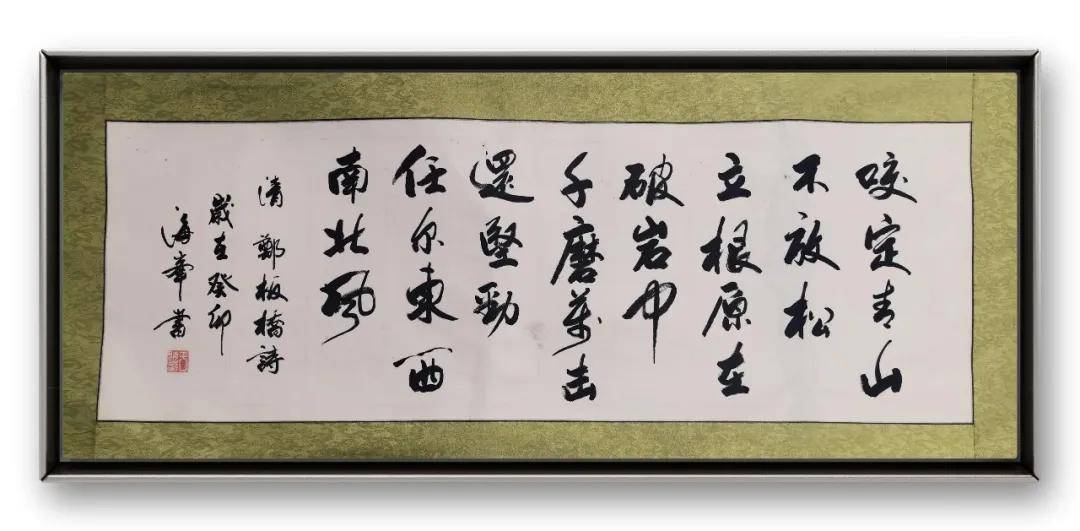 咬定青山
不放松
立根原在
破岩中
千磨萬击
還堅勁
任尔東西
南北风
清 鄭板橋詩
歲在癸卯
海章書